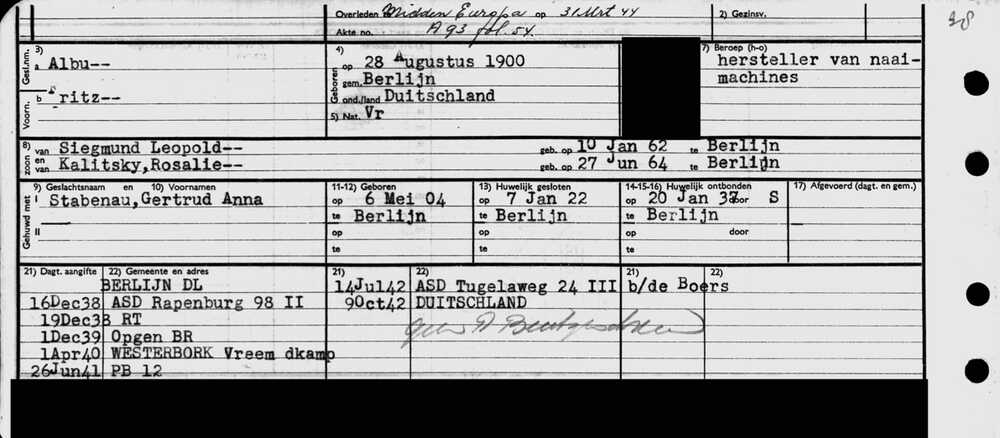 Overleden te Midden Europa op 31 Mrt 44 2) Gezinsv.
Akte no. A 93 fol. 54.
3) 4) 7) Beroep (h-o)
Gesl.nm. a Albu-- Geboren op 28 Augustus 1900 hersteller van naai-
gem. Berlijn machines
Voorn. b Fritz-- ond./land Duitschland
5) Nat. Vr
8) zoon van Siegmund Leopold-- geb. op 10 Jan 62 te Berlijn
en van Kalitsky,Rosalie-- geb. op 27 Jun 64 te Berlijn
9) Geslachtsnaam en 10) Voornamen 11-12) Geboren 13) Huwelijk gesloten 14-15-16) Huwelijk ontbonden 17) Afgevoerd (dagt. en gem.)
Gehuwd met I Stabenau,Gertrud Anna op 6 Mei 04 op 7 Jan 22 op 20 Jan 37 door S
te Berlijn te Berlijn te Berlijn
II op op op door
te te te
21) Dagt. aangifte 22) Gemeente en adres 21) 22) 21) 22)
BERLIJN DL 14Jul42 ASD Tugelaweg 24 III b/de Boers
16Dec38 ASD Rapenburg 98 II 9Oct42 DUITSCHLAND
19Dec38 RT
1Dec39 Opgen BR
1Apr40 WESTERBORK Vreem dkamp
26Jun41 PB 12